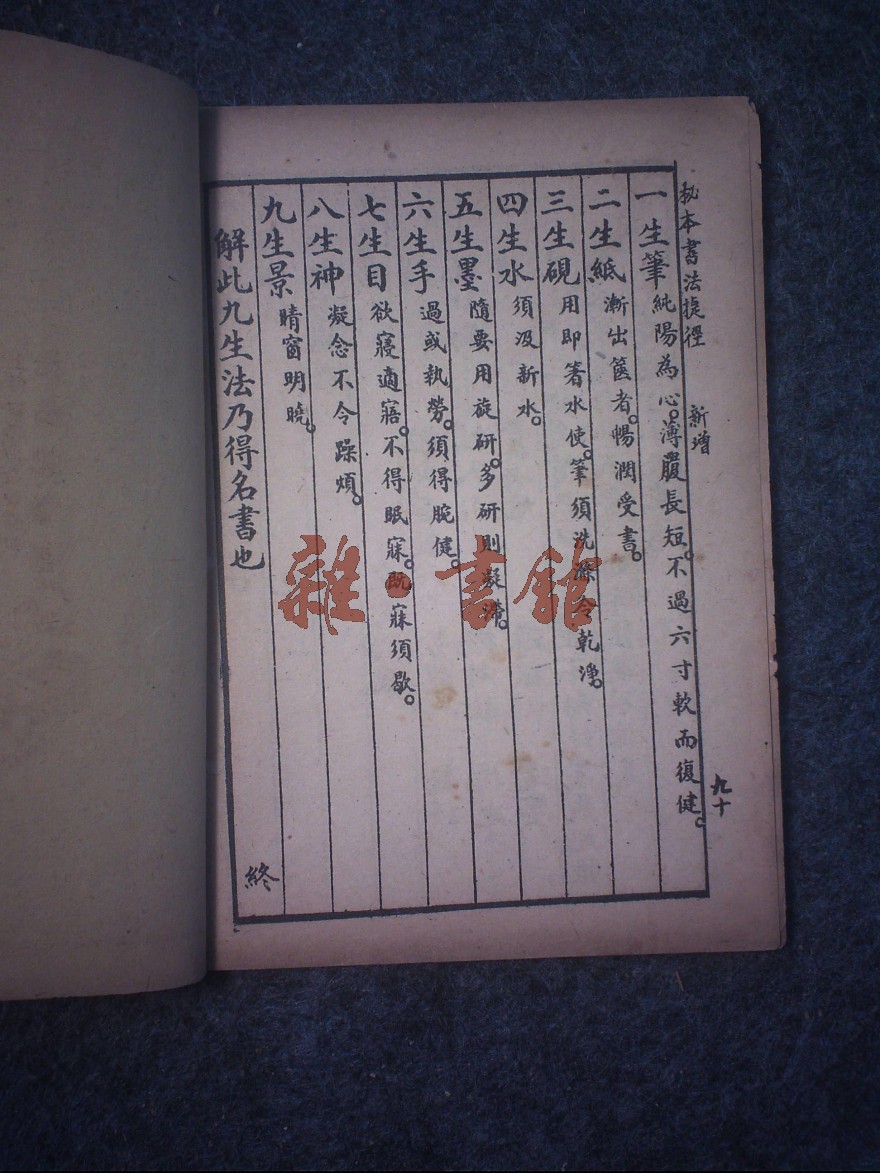 秘本書法捷徑 新增
九十
一生筆 純陽為心。薄覆長短。不過六寸軟而復健。
二生紙 漸出篋者。暢潤受書。
三生硯 用即著水使。筆須洗滌令乾淨。
四生水 須汲新水。
五生墨 隨要用旋研。多研則凝滯。
六生手 過或執勞。須得腕健。
七生目 欲寢適寤。不得眠寐。既寐須歇。
八生神 凝念不令躁煩。
九生景 晴窗明曉。
解此九生法乃得名書也
終
雜·書館